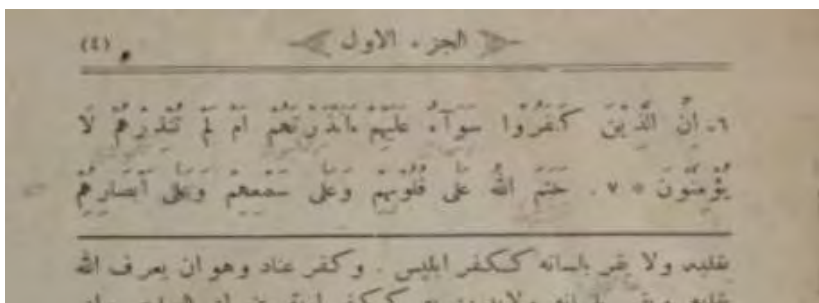 (٤) الجزء الاول
٦. اِنَّ الَّذِيْنَ كَفَرُوْا سَوَآءٌ عَلَيْهِمْ ءَاَنْذَرْتَهُمْ اَمْ لَمْ تُنْذِرْهُمْ لَا
يُؤْمِنُوْنَ * ٧. خَتَمَ اللهُ عَلَى قُلُوْبِهِمْ وَعَلَى سَمْعِهِمْ وَعَلَى اَبْصَارِهِمْ
بقلبه ولا يقر بلسانه ككفر ابليس . وكفر عناد وهو ان يعرف الله